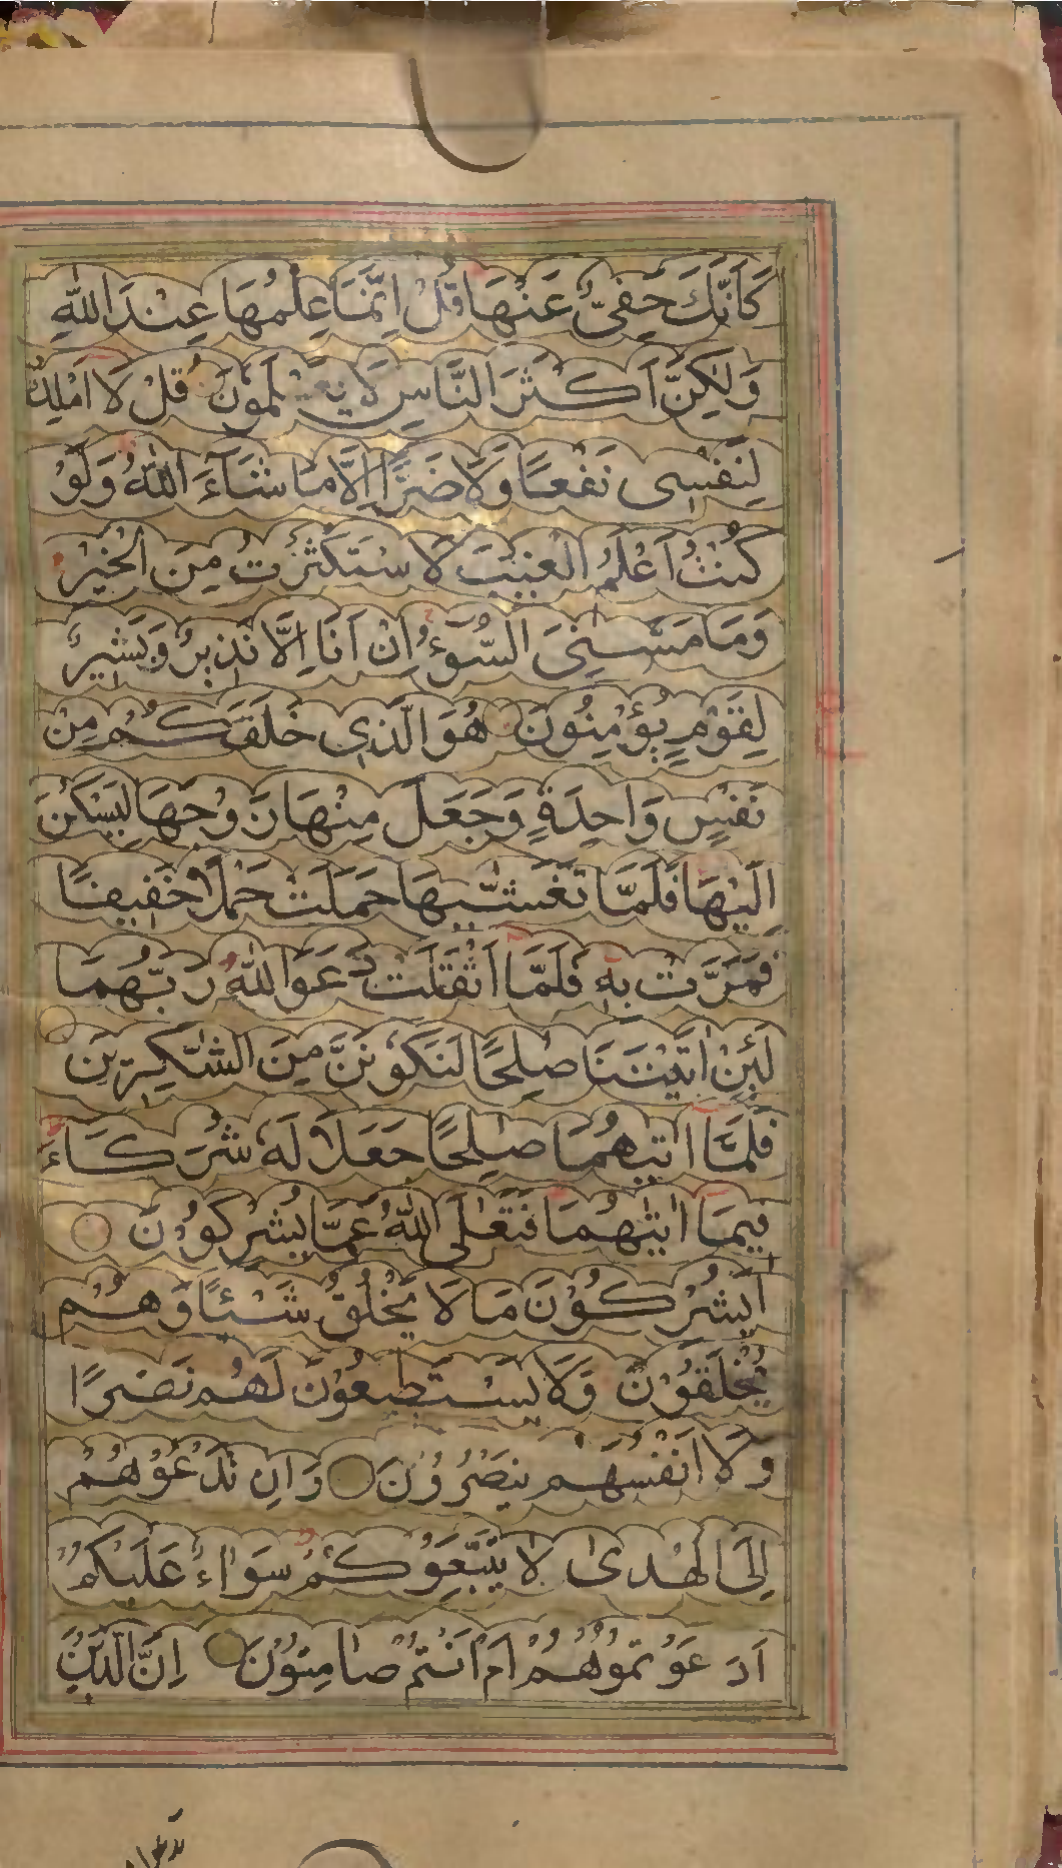 كَاَنَّكَ حَفِیٌّ عَنْهَا قُلْ اِنَّمَا عِلْمُهَا عِنْدَ اللّٰهِ
وَلٰكِنَّ اَكْثَرَ النَّاسِ لَا يَعْلَمُوْنَ قُلْ لَا اَمْلِكُ
لِنَفْسِی نَفْعًا وَلَا ضَرًّا اِلَّا مَا شَآءَ اللّٰهُ وَلَوْ
كُنْتُ اَعْلَمُ الْغَيْبَ لَاسْتَكْثَرْتُ مِنَ الْخَيْرِ
وَمَا مَسَّنِیَ السُّوْٓءُ اِنْ اَنَا اِلَّا نَذِيرٌ وَبَشِيرٌ
لِقَوْمٍ يُؤْمِنُونَ هُوَ الَّذِی خَلَقَكُمْ مِنْ
نَفْسٍ وَاحِدَةٍ وَجَعَلَ مِنْهَا زَوْجَهَا لِيَسْكُنَ
اِلَيْهَا فَلَمَّا تَغَشّٰىهَا حَمَلَتْ حَمْلًا خَفِيفًا
فَمَرَّتْ بِهٖ فَلَمَّا اَثْقَلَتْ دَعَوَا اللّٰهَ رَبَّهُمَا
لَئِنْ اٰتَيْتَنَا صٰلِحًا لَنَكُوْنَنَّ مِنَ الشّٰكِرِيْنَ
فَلَمَّا اٰتٰىهُمَا صٰلِحًا جَعَلَا لَهٗ شُرَكَآءَ
فِيمَا اٰتٰىهُمَا فَتَعٰلَى اللّٰهُ عَمَّا يُشْرِكُوْنَ
اَيُشْرِكُوْنَ مَا لَا يَخْلُقُ شَيْئًا وَهُمْ
يُخْلَقُوْنَ وَلَا يَسْتَطِيعُوْنَ لَهُمْ نَصْرًا
وَلَا اَنْفُسَهُمْ يَنْصُرُوْنَ وَاِنْ تَدْعُوْهُمْ
اِلَى الْهُدٰى لَا يَتَّبِعُوْكُمْ سَوَاءٌ عَلَيْكُمْ
اَدَعَوْتُمُوْهُمْ اَمْ اَنْتُمْ صَامِتُوْنَ اِنَّ الَّذِيْنَ